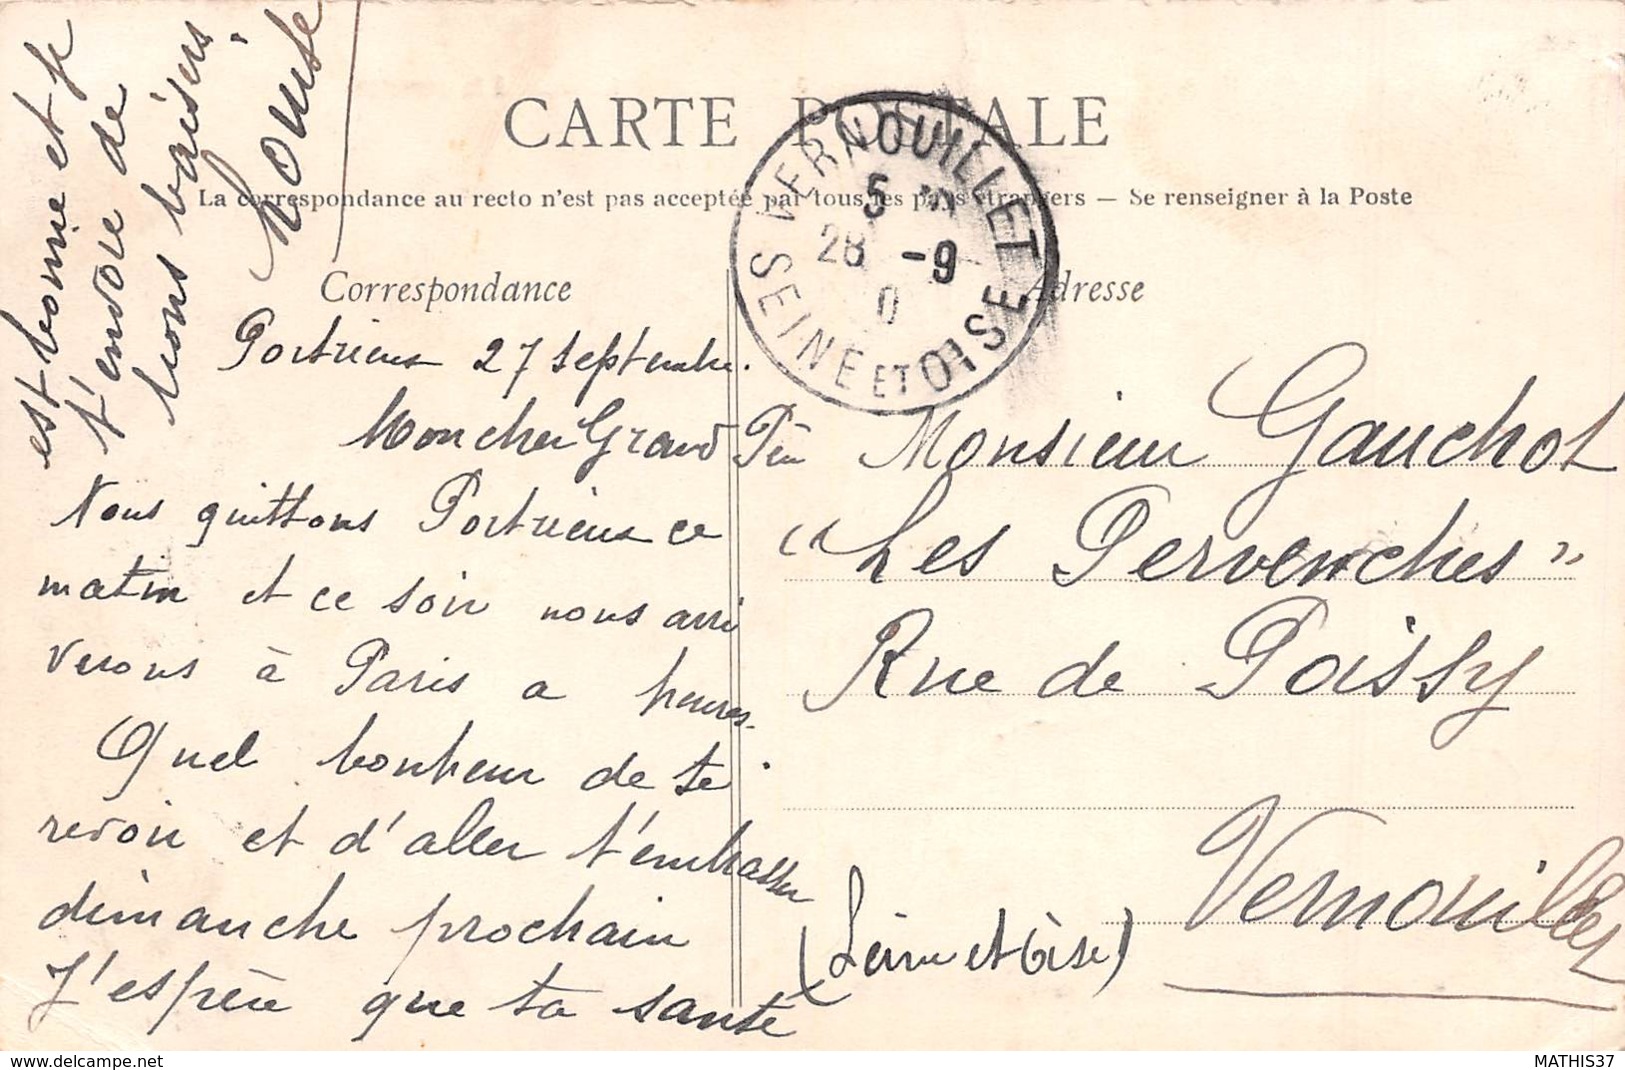 CARTE POSTALE
La correspondance au recto n'est pas acceptée par tous les pays étrangers — Se renseigner à la Poste
Correspondance
Portrieux 27 Septembre.
Mon cher Grand Père
Nous quittons Portrieux ce
matin et ce soir nous arri
verons à Paris a heures.
Quel bonheur de te
revoir et d'aller t'embrasser
dimanche prochain
J'espère que ta santé
est bonne et je
t'envoie de
bons baisers.
Adresse
Monsieur Gauchot
"Les Pervenches"
Rue de Poissy
Vernouillet
(Seine et Oise)
VERNOUILLET
5
28 -9
0
SEINE ET OISE
www.delcampe.net
MATHIS37